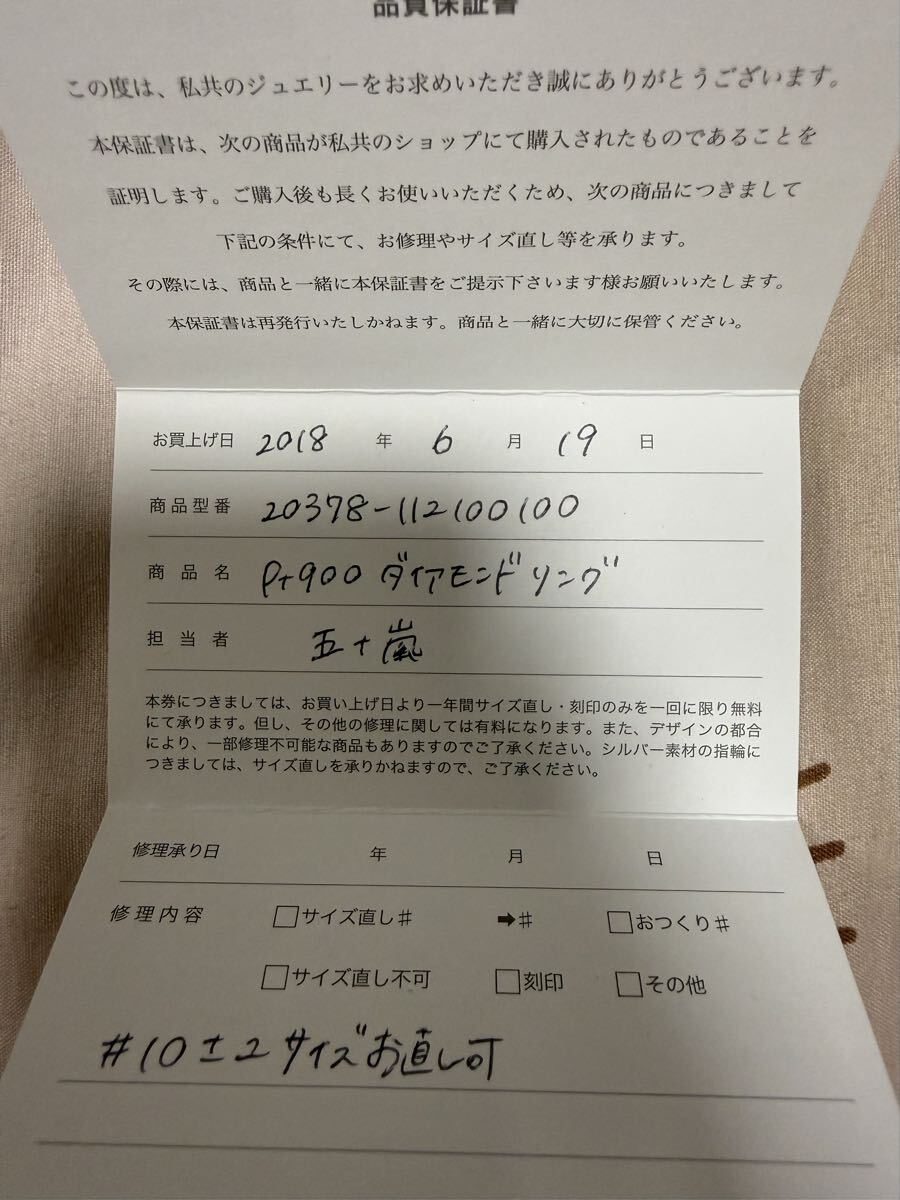 品質保証書
この度は、私共のジュエリーをお求めいただき誠にありがとうございます。
本保証書は、次の商品が私共のショップにて購入されたものであることを
証明します。ご購入後も長くお使いいただくため、次の商品につきまして
下記の条件にて、お修理やサイズ直し等を承ります。
その際には、商品と一緒に本保証書をご提示下さいます様お願いいたします。
本保証書は再発行いたしかねます。商品と一緒に大切に保管ください。
お買上げ日 2018 年 6 月 19 日
商品型番 20378-112100100
商品名 Pt900 ダイアモンドリング
担当者 五十嵐
本券につきましては、お買い上げ日より一年間サイズ直し・刻印のみを一回に限り無料
にて承ります。但し、その他の修理に関しては有料になります。また、デザインの都合
により、一部修理不可能な商品もありますのでご了承ください。シルバー素材の指輪に
つきましては、サイズ直しを承りかねますので、ご了承ください。
修理承り日 年 月 日
修理内容 □サイズ直し# ➡# □おつくり#
□サイズ直し不可 □刻印 □その他
#10±2サイズお直し可